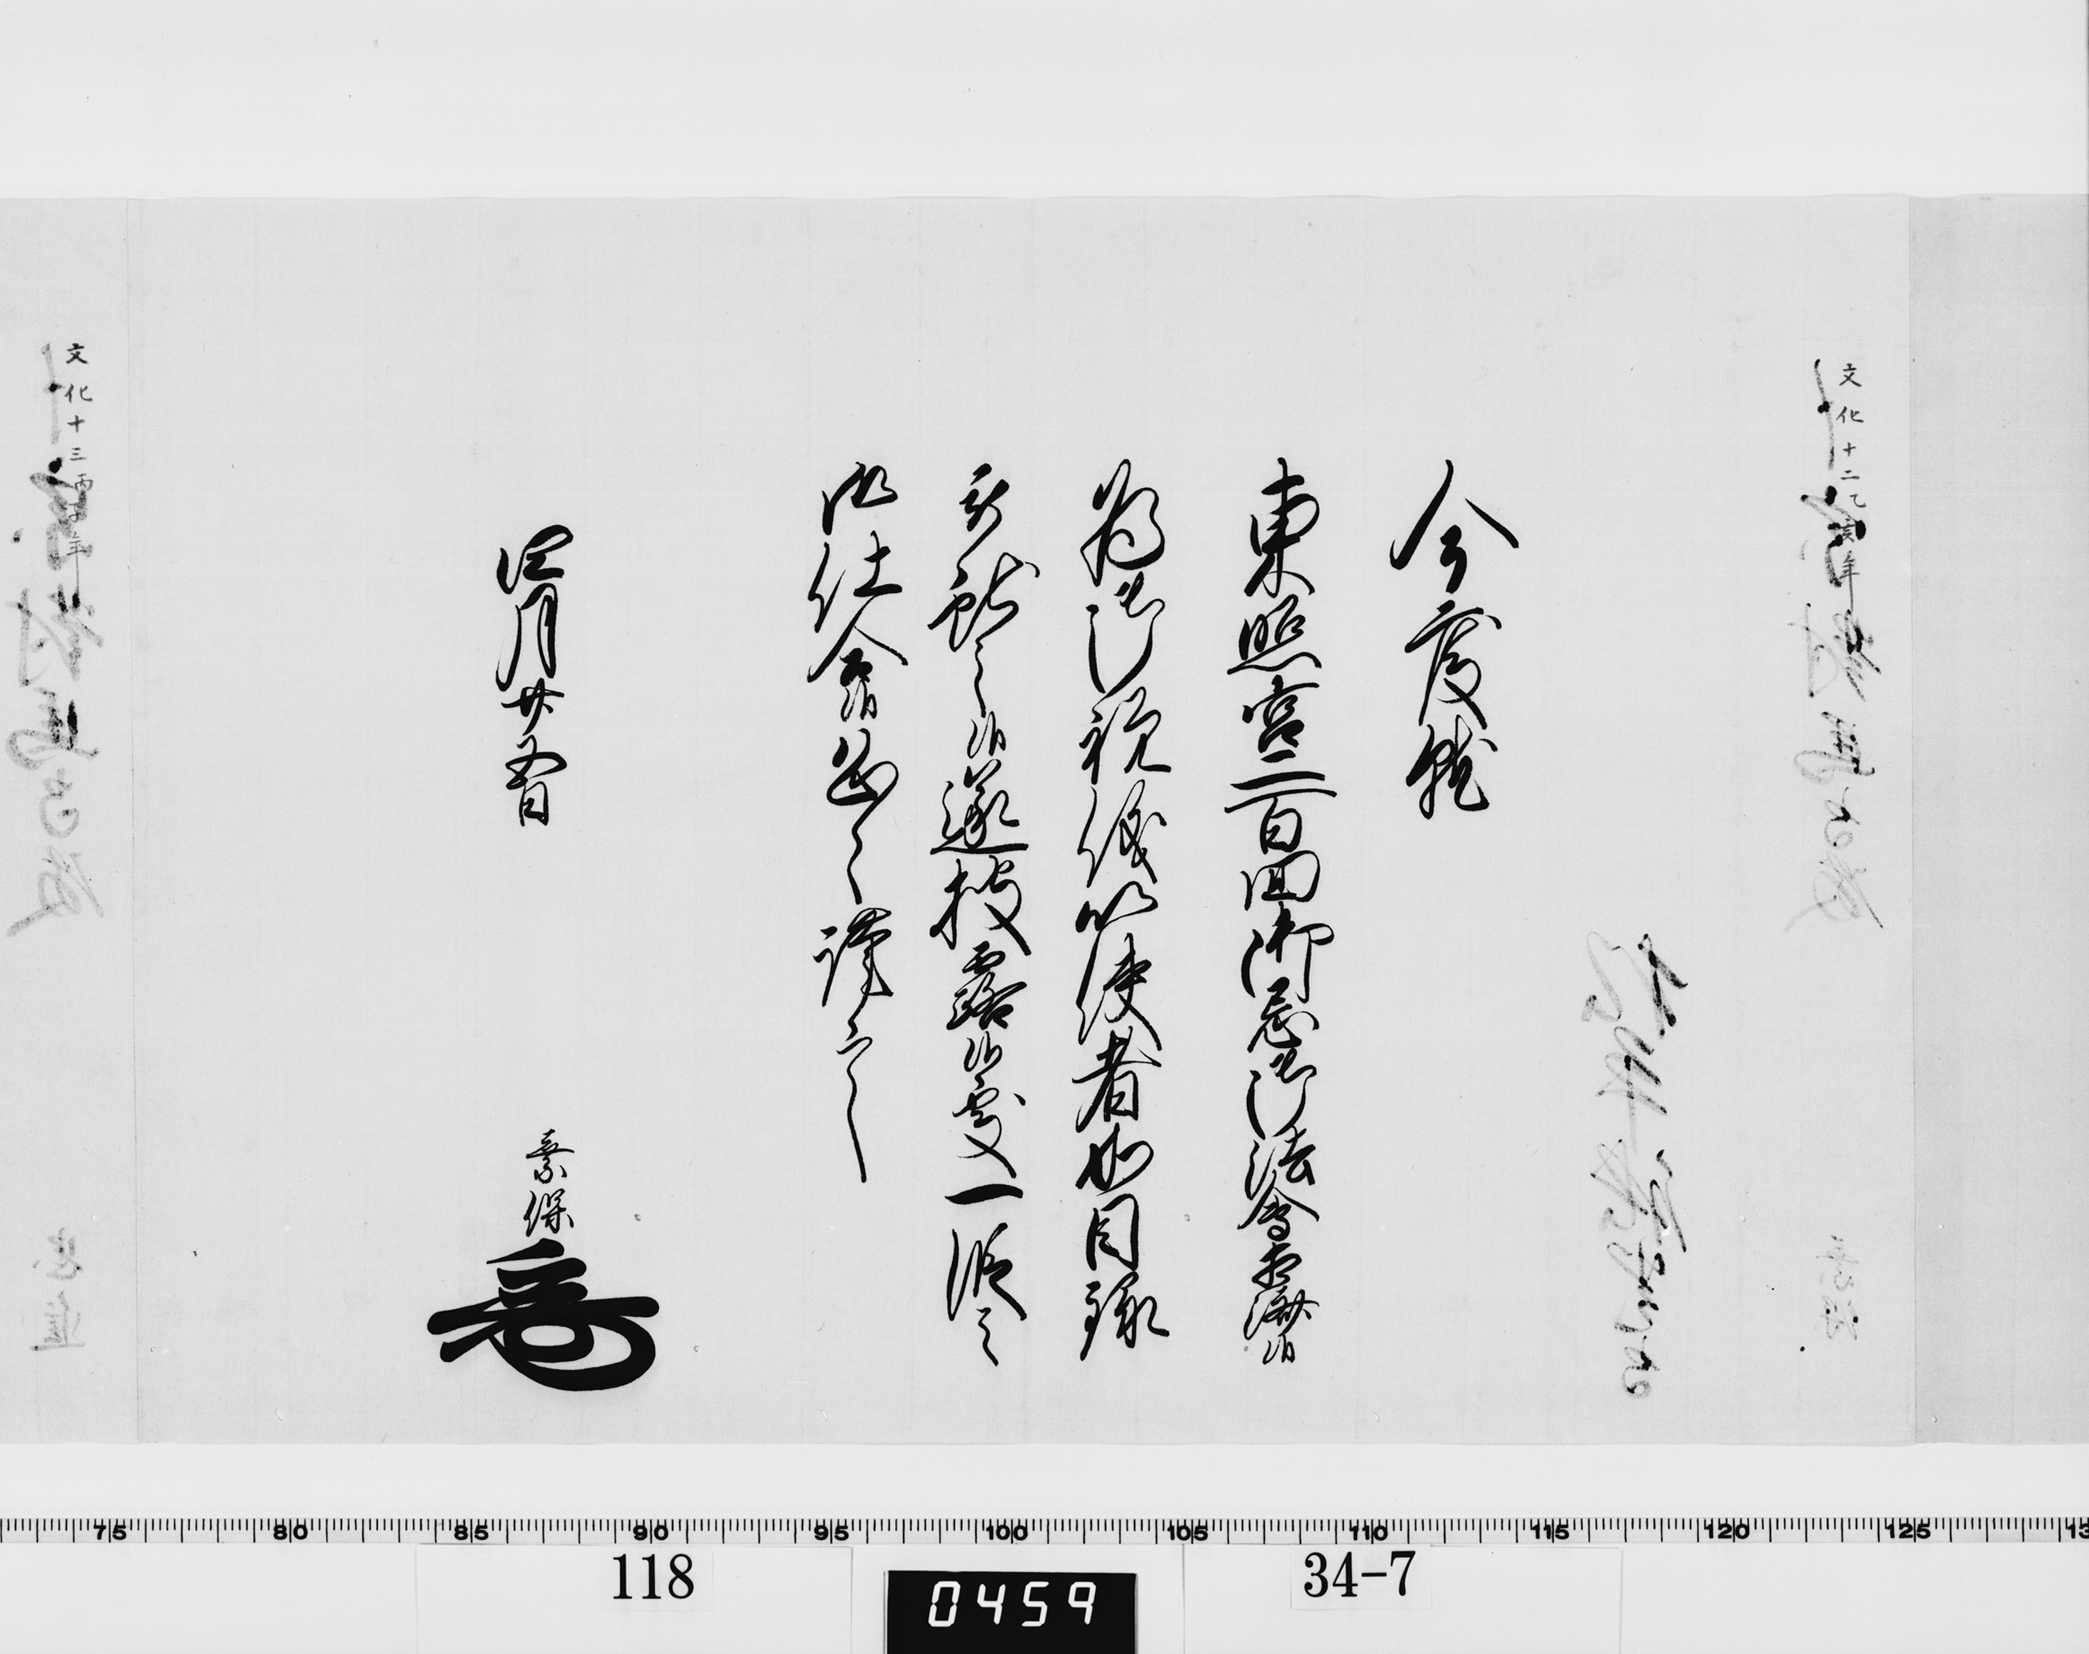 文化十二乙亥年
今度就
東照宮二百回御忌御法会相済候
為御祝儀以使者如目録
被献之候遂披露候処一段之
御仕合候恐々謹言
四月廿五日
乗保
文化十三丙子年
75 80 85 90 95 100 105 110 115 120 125 13
118 0459 34-7